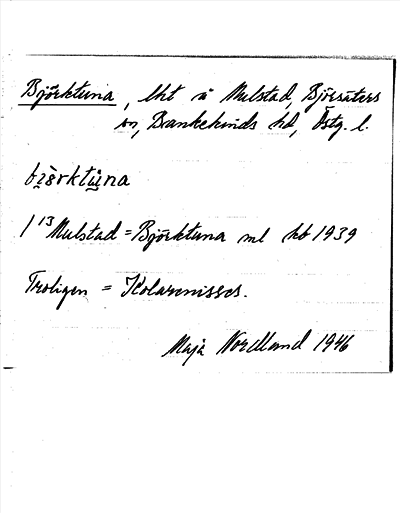 Björktuna, lht å Mulstad, Björsäters
sn, Bankekinds hd, Östg. l.
bi̯ö̀rktu̯na
1 13 Mulstad = Björktuna ml hb 1939
Troligen = Kolarenisses.
Maja Nordlund 1946